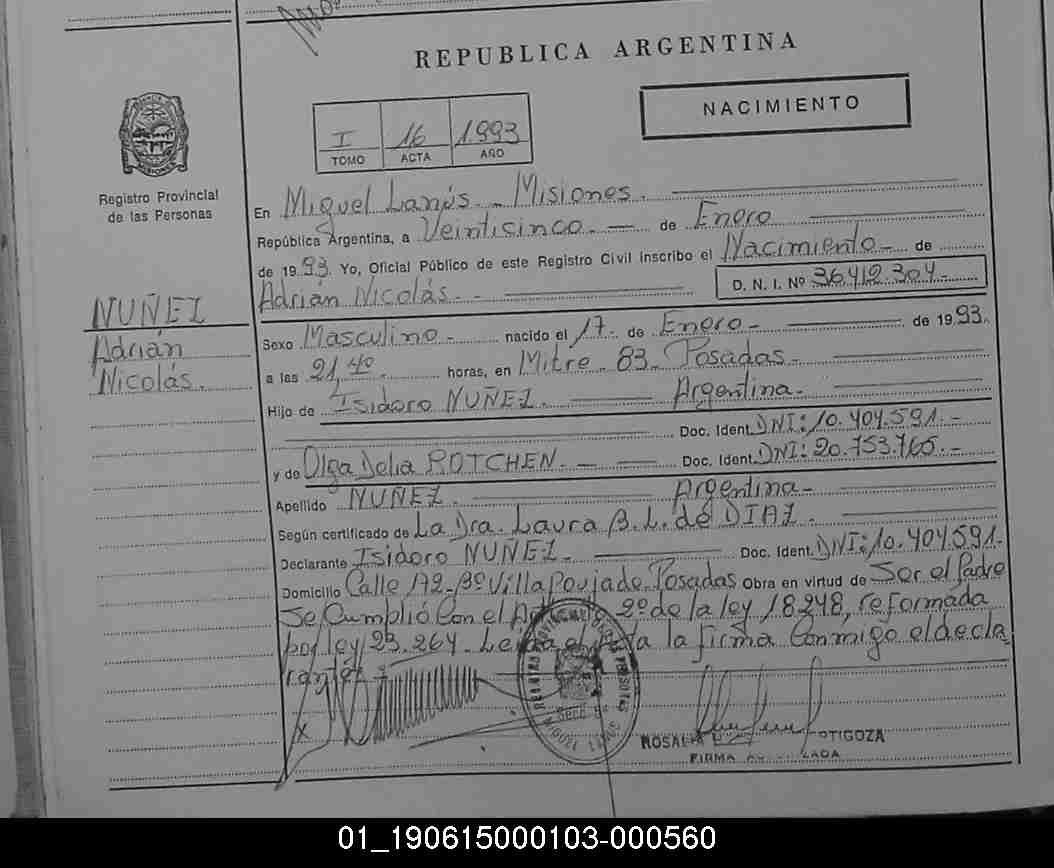 REPUBLICA ARGENTINA
NACIMIENTO
I 16 1.993
TOMO ACTA AÑO
Registro Provincial
de las Personas
En Miguel Lanús.- Misiones.
República Argentina, a Veintisinco.- de Enero
de 1993. Yo, Oficial Público de este Registro Civil inscribo el Nacimiento- de
Adrián Nicolás.- D. N. I. Nº 36.412.304.-
NUÑEZ
Adrián
Nicolás.
Sexo Masculino- nacido el 17. de Enero- de 1993.
a las 21,40 horas, en Mitre. 83. Posadas-
Hijo de Isidoro NUÑEZ. Argentina.
Doc. Ident. DNI: 10.404.591.-
y de Olga Delia ROTCHEN.- Doc. Ident. DNI: 20.753.765.-
Apellido NUÑEZ. Argentina-
Según certificado de La Dra. Laura B. L. de DIAZ.
Declarante Isidoro NUÑEZ. Doc. Ident. DNI: 10.404.591.
Domicilio Calle 172-Bº Villa Poujade. Posadas Obra en virtud de Ser el Padre
Se Cumplió Con el 2º de la ley 18248, reformada
por ley 23.264. Leída el la firma Conmigo el decla
rante
ROSALIA OTIGOZA
FIRMA
01_190615000103-000560